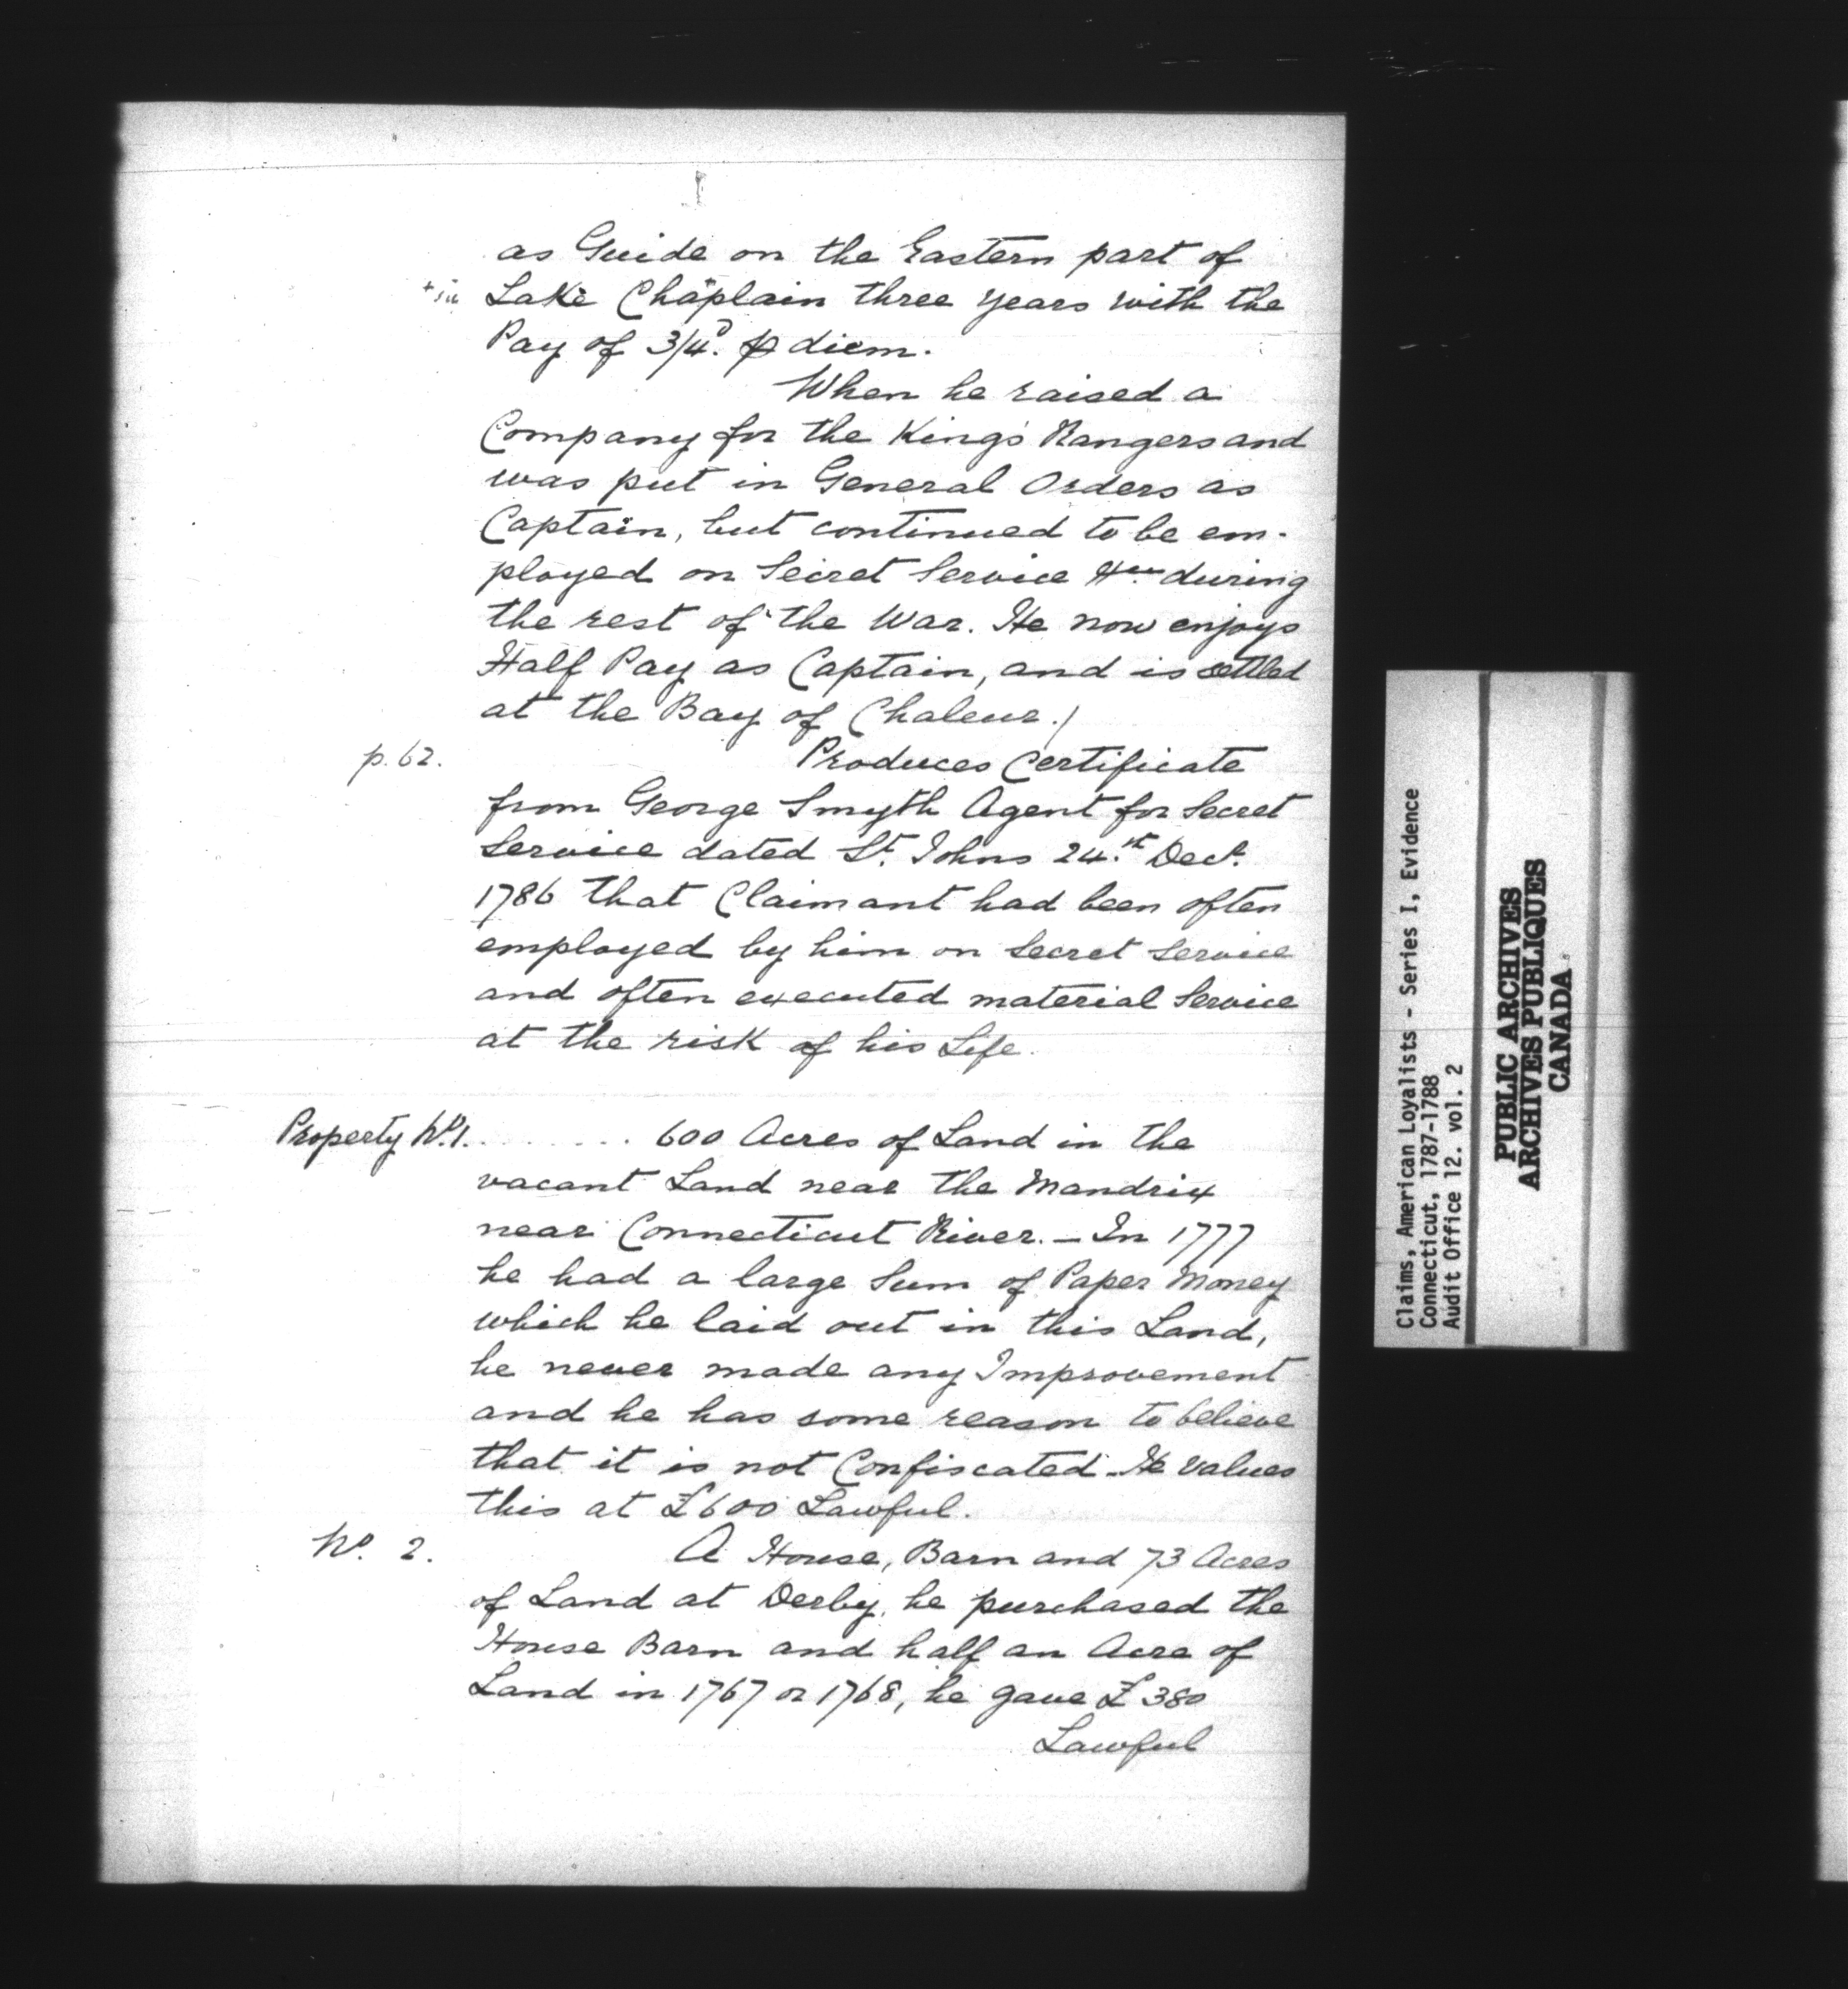 as Guide on the Eastern part of
+ sic Lake Chaplain three years with the
Pay of 3/4d. ⅌ diem.
When he raised a
Company for the King's Rangers and
was put in General Orders as
Captain, but continued to be em-
ployed on Secret Service &c. during
the rest of the War. He now enjoys
Half Pay as Captain, and is settled
at the Bay of Chaleur.)
p. 62. Produces Certificate
from George Smyth Agent for Secret
Service dated St. Johns 24.th Decr.
1786 that Claimant had been often
employed by him on Secret Service
and often executed material Service
at the risk of his Life.
Property No. 1. ........ 600 Acres of Land in the
vacant Land near the Mandrix
near Connecticut River. – In 1777
he had a large Sum of Paper Money
which he laid out in this Land,
he never made any Improvement
and he has some reason to believe
that it is not Confiscated. He values
this at £600 Lawful.
No. 2. A House, Barn and 73 Acres
of Land at Derby, he purchased the
House Barn and half an Acre of
Land in 1767 or 1768, he gave £380
Lawful
Claims, American Loyalists - Series I, Evidence
Connecticut, 1787-1788
Audit Office 12. vol. 2
PUBLIC ARCHIVES
ARCHIVES PUBLIQUES
CANADA